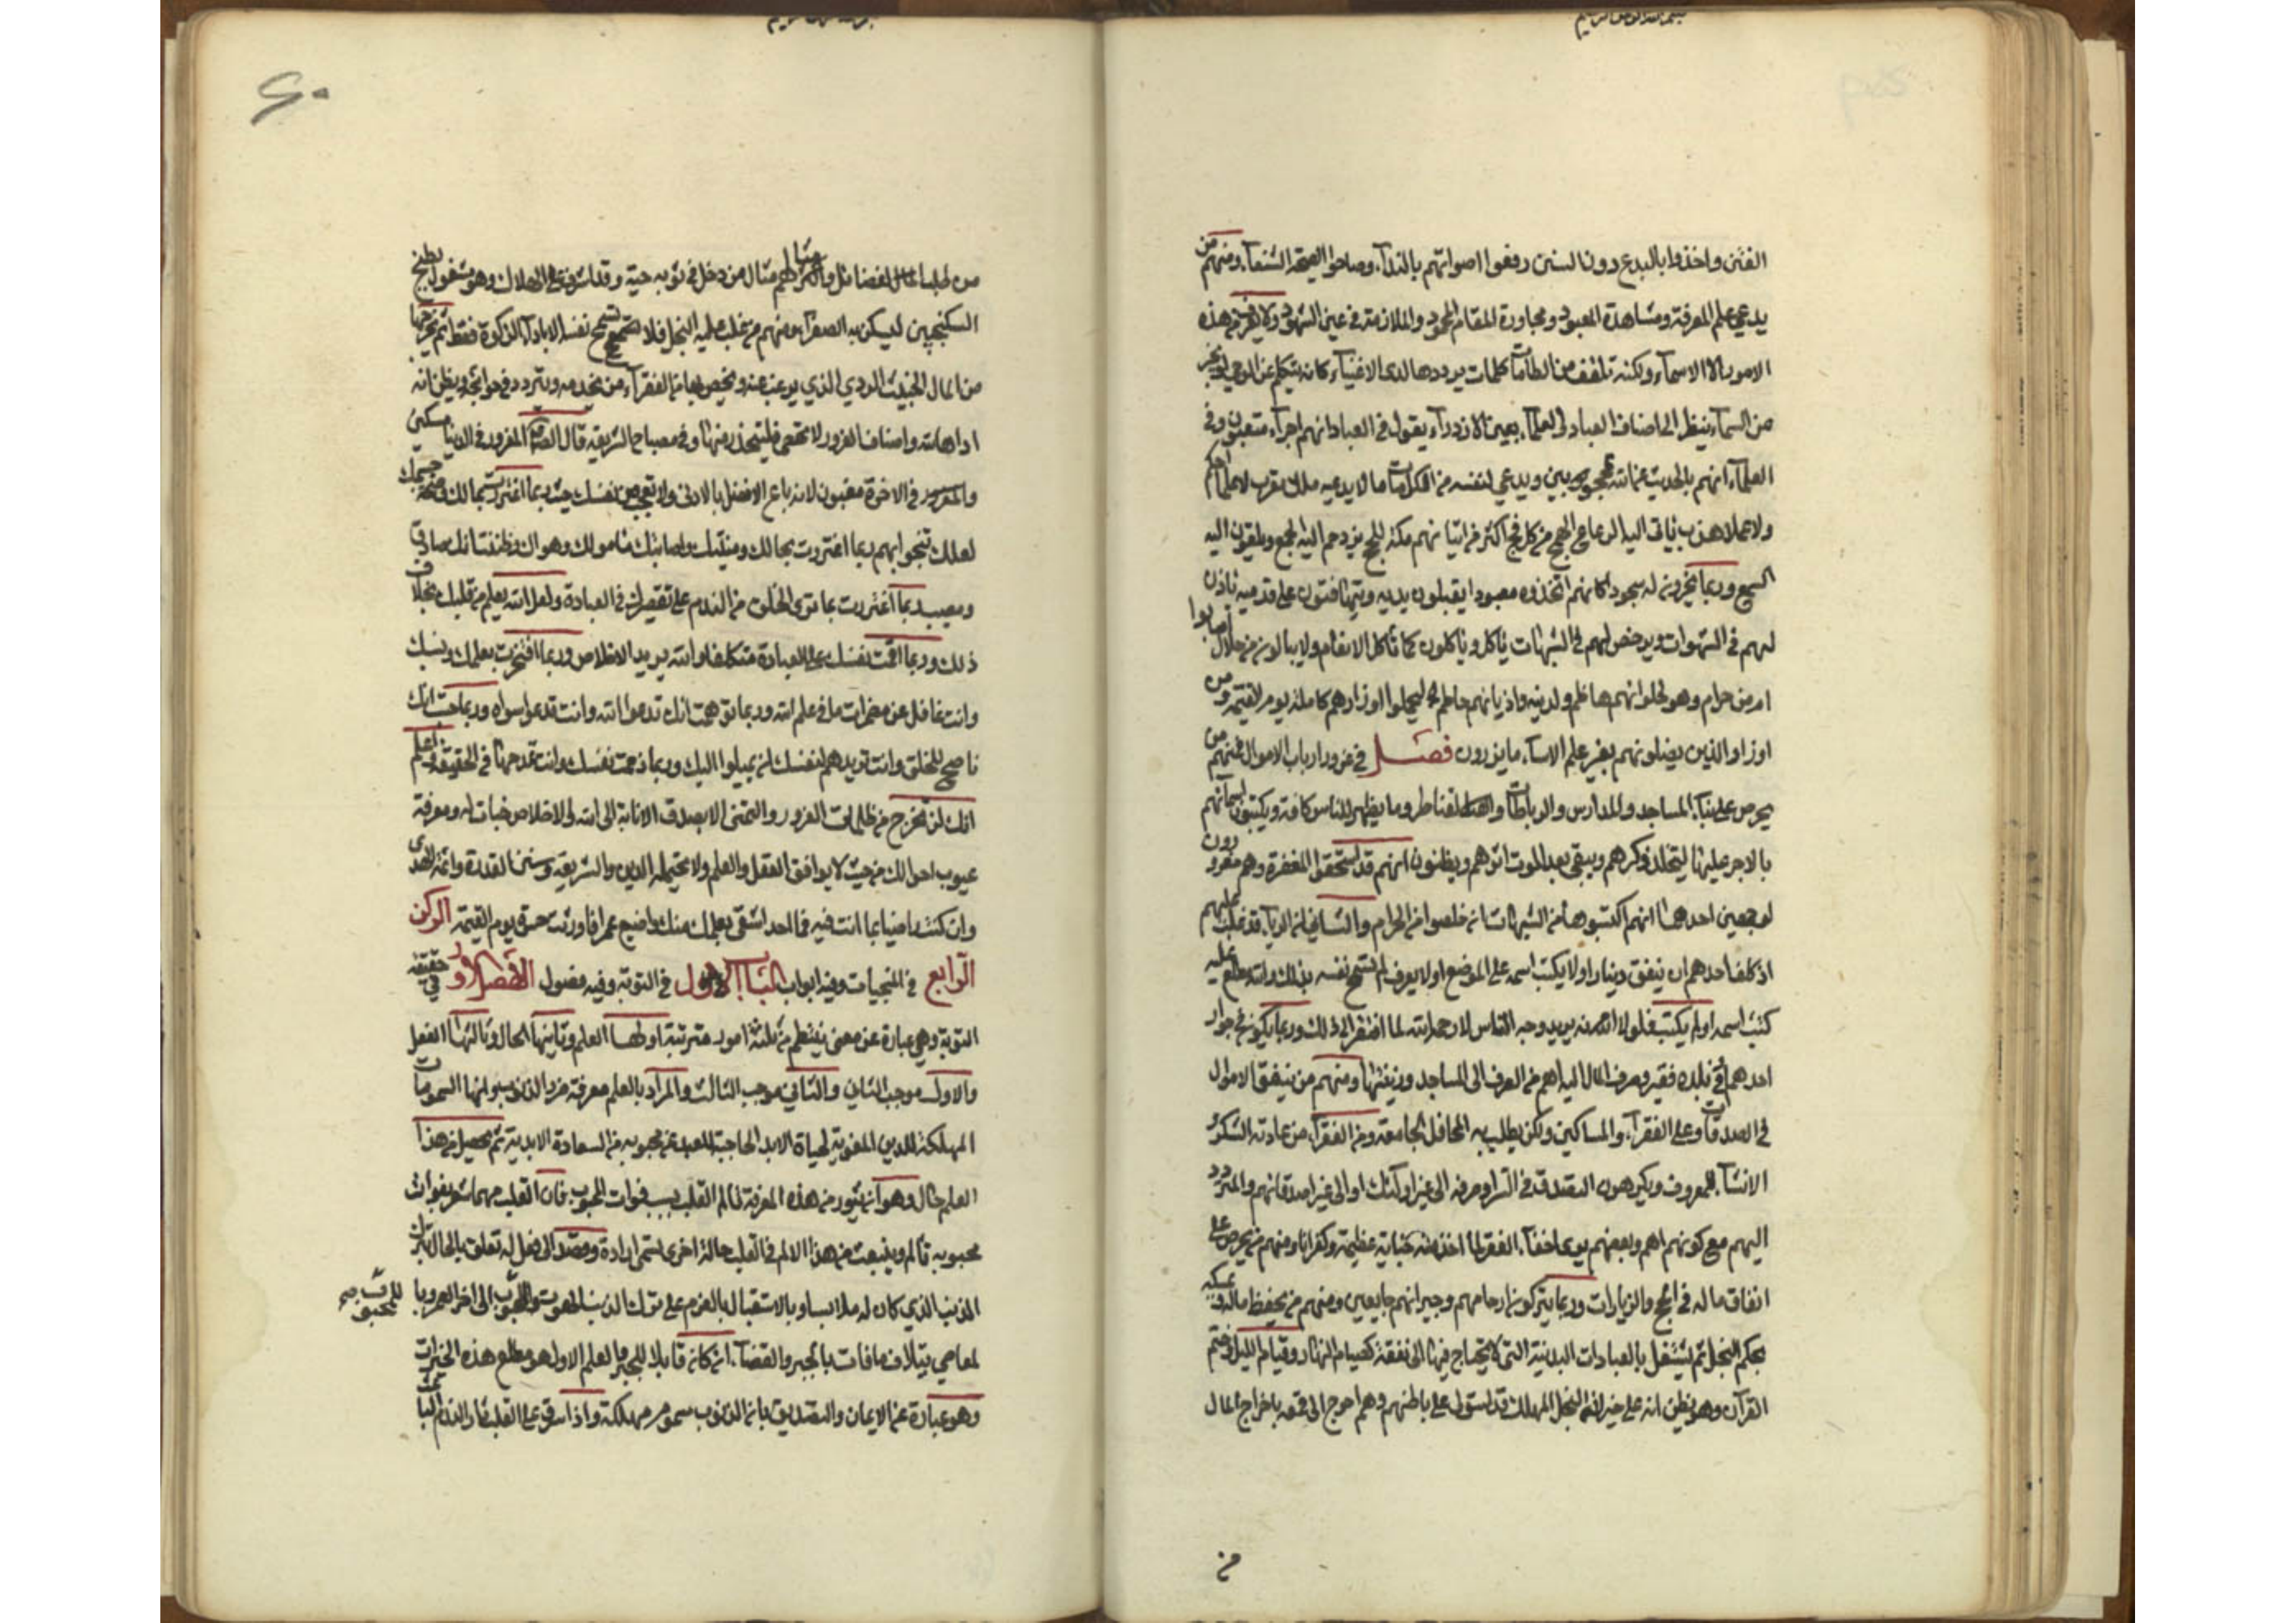 بسم الله الرحمن الرحيم
الفتن واخذوا بالبدع دون السنن رفعوا اصواتهم بالندآء وصاحوا الصيحة الشنعآء ومنهم من
يدعي علم المعرفة ومشاهدة المعبود ومجاورة المقام المحمود والملازمة في عين الشهود ولا يعرف من هذه
الامور الا الاسمآء ولكنه تلقف من الطامات كلمات يرددها لدى الاغنيآء كانه يتكلم عن الوحي ويخبر
من السمآء ينظر الى اصناف العباد والعلمآء بعين الازدرآء يقول في العباد انهم اجرآء متعبون وفي
العلمآء انهم بالحديث عن الله محجوبون ويدعي لنفسه من الكرامات ما لا يدعيه ملك مقرب لا علما احكم
ولا عملا هذب ياتي اليه الرعاع الهمج من كل فج اكثر من اتيانهم مكة للحج يزدحم اليه الجمع ويلقون اليه
السمع وربما يخرون له سجودا كانهم اتخذوه معبودا يقبلون يديه ويتهافتون على قدميه ياذن
لهم في الشهوات ويرخص لهم في الشبهات ياكل وياكلون كما تاكل الانعام ولا يبالون من حلال اصابوا
ام من حرام وهو لحلوائهم هاضم ولدينه واديانهم حاطم ليحملوا اوزارهم كاملة يوم القيمة ومن
اوزار الذين يضلونهم بغير علم الاساء ما يزرون فصل في غرور ارباب الاموال فمنهم من
يحرص على بناء المساجد والمدارس والرباطات والقناطر وما يظهر للناس كافة ويكتبون اسمآئهم
بالاجر عليها ليتخلد ذكرهم ويبقى بعد الموت اثرهم ويظنون انهم قد استحقوا المغفرة وهم مغرورون
لوجهين احدهما انهم اكتسبوها من الشبهات ان خلصوا من الحرام والثاني ان الريآء قد غلب عليهم
اذ كلف احدهم ان ينفق دينارا ولا يكتب اسمه على الموضع او لا يعرف لم تسمح نفسه بذلك والله مطلع عليه
كتب اسمه او لم يكتب فلولا انه يريد وجه الناس لا وجه الله لما افتقر الى ذلك وربما يكون في جوار
احدهم او في بلده فقير وصرف المال اليه اهم من الصرف الى المساجد وزينتها ومنهم من ينفق الاموال
في الصدقات وعلى الفقرآء والمساكين ولكن يطلب به المحافل الجامعة ومن الفقرآء من عادته الشكر و
الافشآء للمعروف ويكرهون التصدق في السر او صرفه الى غير اولئك او الى غير اصدقائهم والمتردد
اليهم مع كونهم اهم وبعضهم يرى اخفآء الفقير لما اخذ منه جناية عظيمة وكفرانا ومنهم من يحرص على
انفاق ماله في الحج والزيارات وربما يتركون ارحامهم وجيرانهم جايعين ومنهم من يحفظ ماله ويمسكه
بحكم البخل ثم يشتغل بالعبادات البدنية التي لا يحتاج فيها الى نفقة كصيام النهار وقيام الليل وختم
القرآن وهو يظن انه على خير لان البخل المهلك قد استولى على باطنهم وهم احوج الى قمعه باخراج المال
من
٤٠
من طلب الفضائل ومثالهم مثال من دخل في ثوبه حية وقد اشرف على الهلاك وهو مشغول بطبخ
السكنجبين ليسكن به الصفرآء ومنهم من غلب عليه البخل فلا تسمح نفسه الا بادآء الزكوة فقط ثم يخرجها
من المال الخبيث الردي الذي يرغب عنه ويخص بها من الفقرآء من يخدمه ويتردد في حوائجه ويظن انه
اداها لله واصناف الغرور لا تحصى فليتحذر منها وفي مصباح الشريعة قال الصادق المغرور في الدنيا مسكين
والمغرور في الاخرة مغبون لانه باع الافضل بالادنى ولا تعجب من نفسك حيث ربما اغتررت بمالك وصحة جسمك
لعلك تبقى وربما اغتررت بجمالك ومنيتك واصابتك مامولك وهواك وظننت انك صادق
ومصيب وربما اغتررت بما ترى الخلق من الندم على تقصيرك في العبادة ولعل الله يعلم من قلبك بخلاف
ذلك وربما اقمت نفسك على العبادة متكلفا والله يريد الاخلاص وربما افتخرت بعلمك ونسبك
وانت غافل عن مضمرات ما في علم الله وربما توهمت انك تدعو الله وانت تدعوا سواه وربما حسبت انك
ناصح للخلق وانت تريدهم لنفسك ان يميلوا اليك وربما ذممت نفسك وانت تمدحها في الحقيقة واعلم
انك لن تخرج من ظلمات الغرور والتمني الا بصدق الانابة الى الله والاخلاص خبات له ومعرفة
عيوب احوالك من حيث لا يوافق العقل والعلم ولا يحتمله الدين والشريعة وسنن القدوة وائمة الهدى
وان كنت راضيا بما انت فيه فما احد اشقى بعلمك منك واضيع عمرا فاورثت حسرة يوم القيمة الركن
الرابع في المنجيات وفيه ابواب الباب الاول في التوبة وفيه فصول الفصل الاول في حقيقة
التوبة وهي عبارة عن معنى ينتظم من ثلثة امور مترتبة اولها العلم وثانيها الحال وثالثها الفعل
والاول موجب الثاني والثاني موجب الثالث والمراد بالعلم معرفة ضرر الذنوب وانها السمومات
المهلكة للدين المفوتة لحياة الابد الحاجبة للعبد عن محبوبه من السعادة الابدية ثم يحصل من هذا
العلم حال وهو ان يثور من هذه المعرفة تالم القلب بسبب فوات المحبوب فان القلب مهما شعر بفوات
محبوبه تالم وينبعث من هذا الالم في القلب حالة اخرى تسمى ارادة وقصد الى فعل له تعلق بالحال بترك
الذنب الذي كان له ملابسا وبالاستقبال بالعزم على ترك الذنب المفوت للمحبوب الى اخر العمر وبا
لماضي بتلاف ما فات بالجبر والقضآء ان كان قابلا للجبر والعلم الاول هو مطلع هذه الخيرات
وهو عبارة عن الايمان والتصديق بان الذنوب سموم مهلكة واذا اشرق على القلب نار الندم